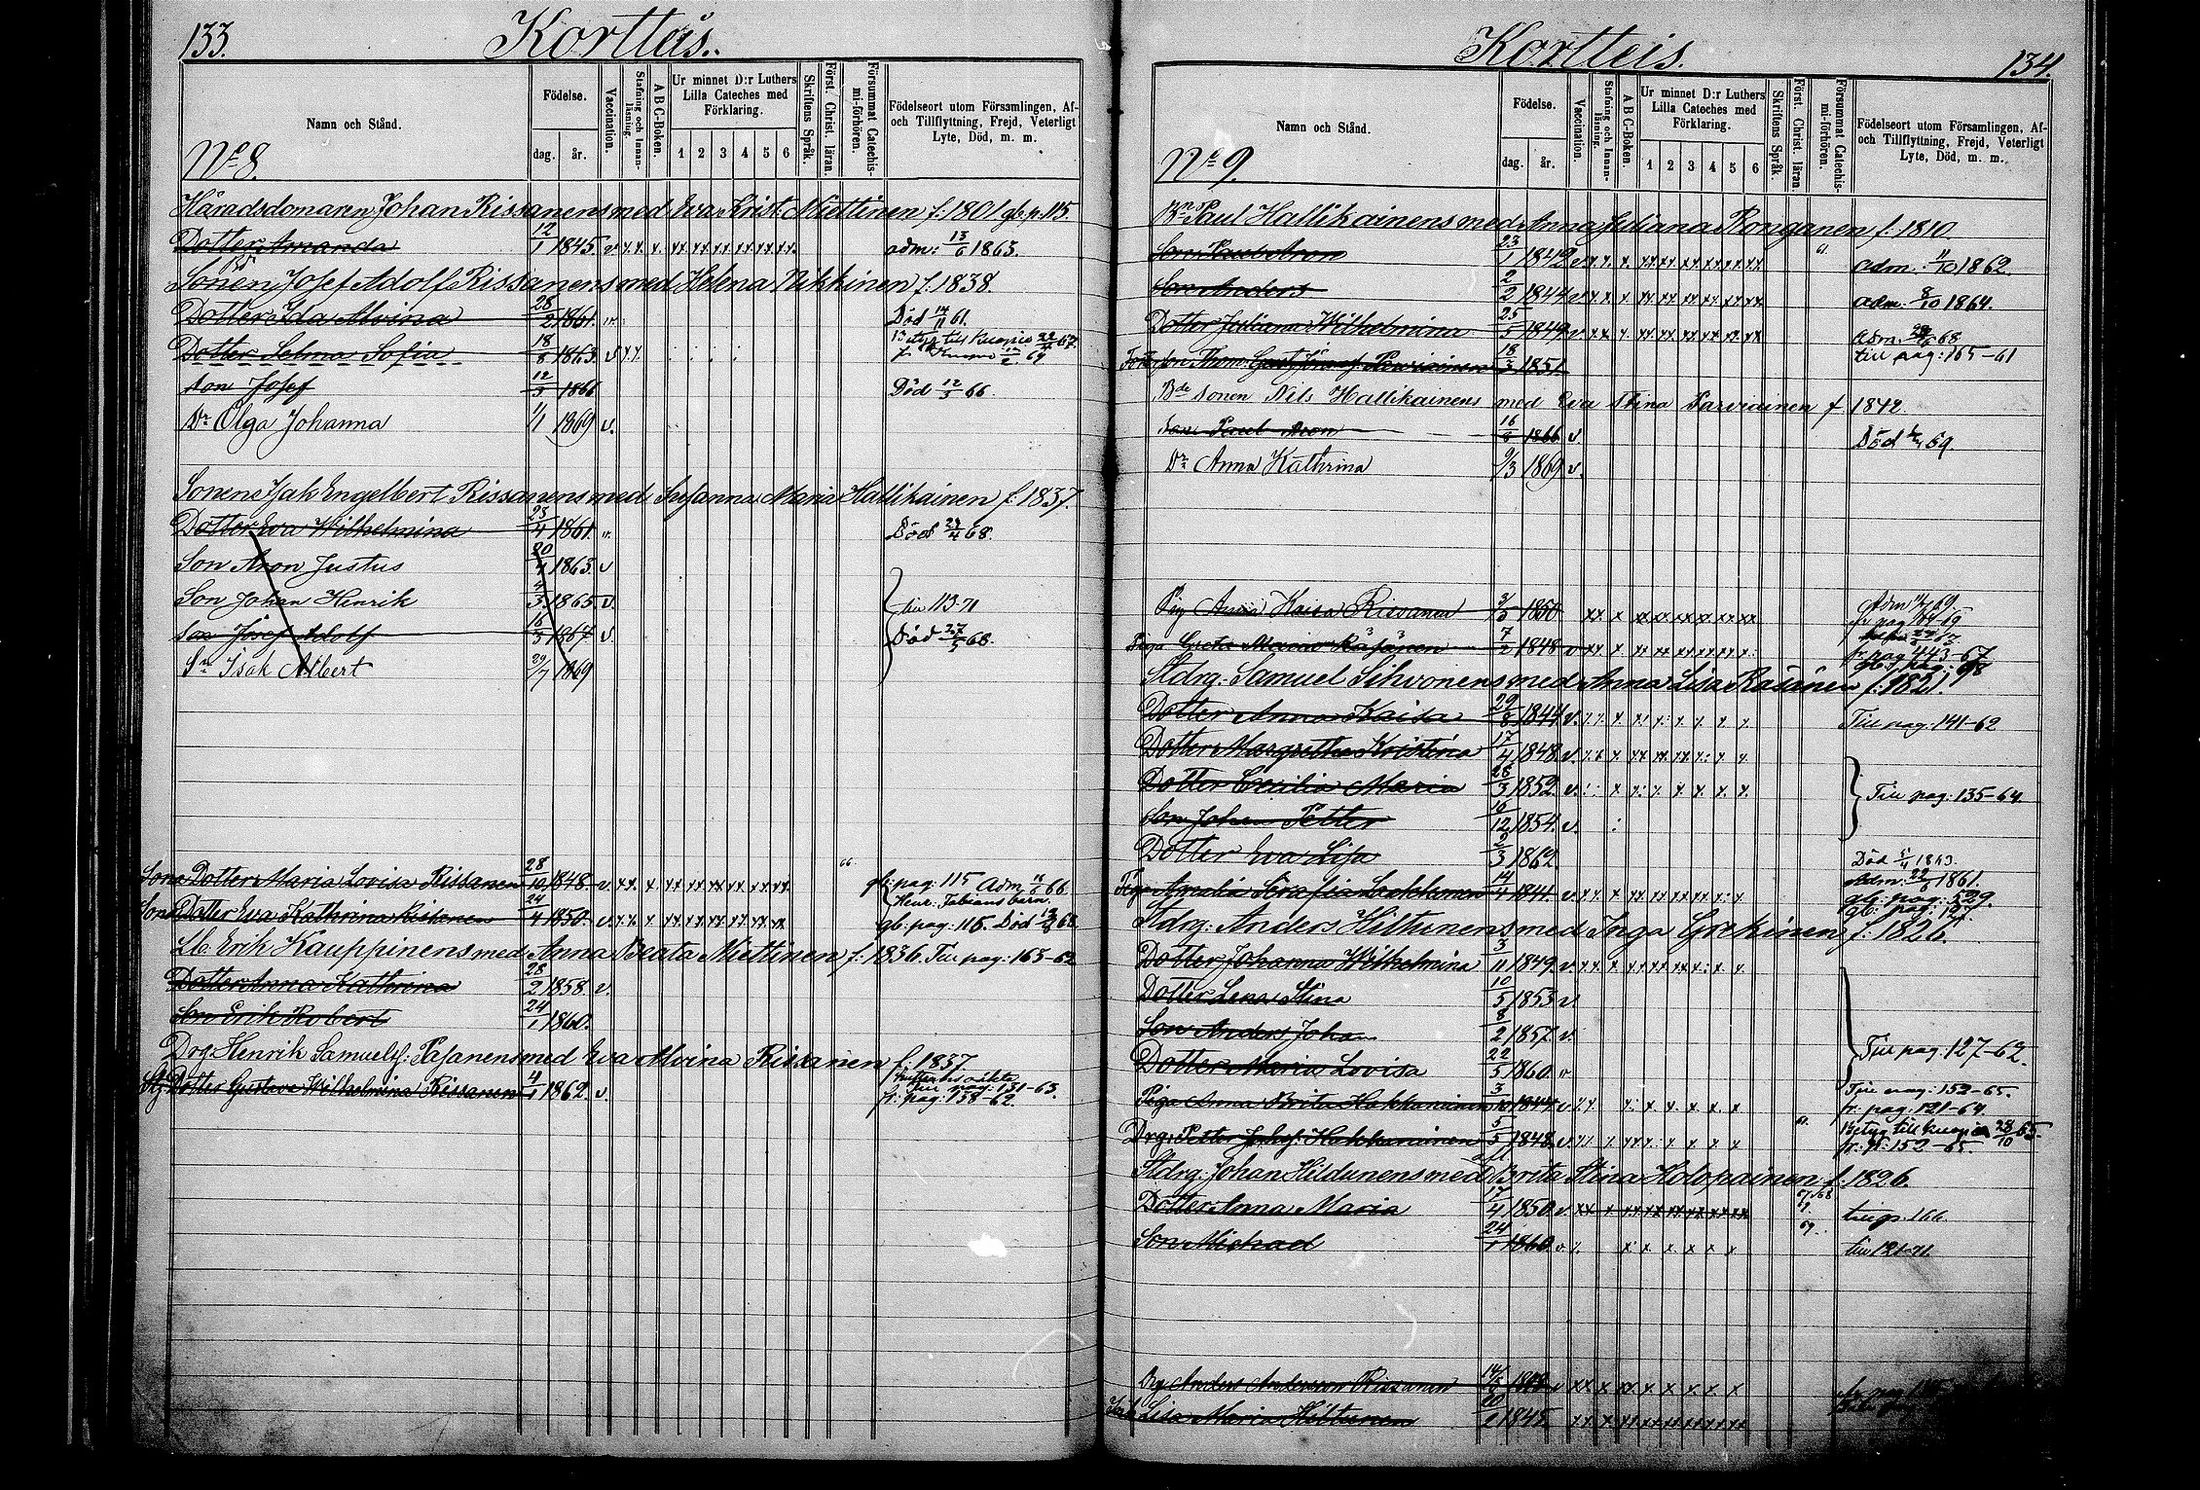 133.
Kortteis.
Namn och Stånd.
Födelse.
dag. år.
Vaccination.
Stafning och Innan-läsning.
A B C-Boken.
Ur minnet D:r Luthers Lilla Cateches med Förklaring.
1 2 3 4 5 6
Skriftens Språk.
Först. Christ. läran.
Försummat Catechis-mi-förhören.
Födelseort utom Församlingen, Af- och Tillflyttning, Frejd, Veterligt Lyte, Död, m. m.
No 8.
Häradsdomaren Johan Rissanens med Eva Krist. Miettinen f. 1801 gb. p. 115.
Dotter Amanda 12/1 1845. v adm: 13/6 1863.
Sonen Josef Adolf Rissanens med Helena Nikkinen f. 1838.
Dotter Ida Alvina 28/2 1861. Död 14/11 61.
Dotter Selma Sofia 18/8 1863. v
son Josef 12/3 1866 Död 12/5 66.
Dr Olga Johanna 1/1 1869 v.
Sonen Isak Engelbert Rissanens med Susanna Maria Hallikainen f. 1837.
Dotter Eva Wilhelmina 23/4 1861. Död 29/4 68.
Son Aron Justus 20/4 1863. v
Son Johan Henrik 4/3 1865. v. till 113-71
Son Josef Adolf 16/3 1867 v. Död 27/5 68.
Sn Isak Albert 29/7 1869
Sons Dotter Maria Lovisa Rissanen 28/10 1848. v. gb: pag: 115 Adm 66.
Sons Dotter Eva Kathrina Rissanen 24/4 1850. v. gb: pag: 115. Död 68.
Lb. Erik Kauppinens med Anna Beata Miettinen f. 1836. Till pag: 163-62
Dotter Anna Kathrina 28/2 1858. v.
Son Erik Robert 24/1 1860.
Drg. Henrik Samuelsf: Pasanens med Eva Alvina Rissanen f. 1837.
Dotter Gustava Wilhelmina Rissanen 4/1 1862. v. till pag: 131-63.
fr: pag: 138-62.
Kortteis.
134.
Namn och Stånd.
Födelse.
dag. år.
Vaccination.
Stafning och Innan-läsning.
A B C-Boken.
Ur minnet D:r Luthers Lilla Cateches med Förklaring.
1 2 3 4 5 6
Skriftens Språk.
Först. Christ. läran.
Försummat Catechis-mi-förhören.
Födelseort utom Församlingen, Af- och Tillflyttning, Frejd, Veterligt Lyte, Död, m. m.
No 9.
Paul Hallikainens med Anna Juliana Ronganen f. 1810.
Son Paul Aron 23/1 1842 v adm. 11/10 1862.
Son Anders 2/2 1844 v adm. 8/10 1864.
Dotter Juliana Wilhelmina 25/5 1849 v adm. 68
18/3 1851. till pag: 165-61
Bde sonen Nils Hallikainens med Eva Stina Parviainen f 1842.
Son Paul Aron 16/8 1866 v. Död 69.
Dr Anna Kathrina 9/3 1869 v.
Pig Anna Kaisa Rissanen 1850 Adm 69.
Piga Greta Maria Räsänen 7/2 1848 v fr pag 443-67
Stdrg: Samuel Sihvonens med Anna Lisa Räsänen f. 1821.
Dotter Anna Kaisa 29/8 1844 v. Till pag: 141-62
Dotter Margretha Kristina 17/4 1848. v.
Dotter Cecilia Maria 28/3 1852. v. Till pag: 135-64.
Son Johan Petter 16/12 1854. v.
Dotter Eva Lisa 2/3 1862. Död 1863.
Piga Amalia Serafia Lakkonen 14/4 1844. v. Adm: 22/6 1861.
gb: pag: 529.
Stdrg: Anders Hiltunens med Inga Grekinen f. 1826.
Dotter Johanna Wilhelmina 3/11 1849. v.
Dotter Lena Stina 10/5 1853 v
Son Anders Johan 8/2 1857. v.
Dotter Maria Lovisa 22/5 1860. v Till pag: 127-62.
Piga Anna Brita Hakkarainen 3/10 1844 v. Till pag: 152-65.
fr. pag: 121-64.
Drg. Petter Johsf: Hakkarainen 5/5 1848. v Betyg till Kuopio 28/10 65.
fr: p: 152-65.
Stdrg: Johan Hildunens med Brita Stina Holopainen f. 1826.
Dotter Anna Maria 17/4 1850. v. till p. 166.
Son Michael 24/1 1860 v till 121-71
Drg Anders Andersson Rissanen
Lisa Maria Hiltunen 20/2 1845.